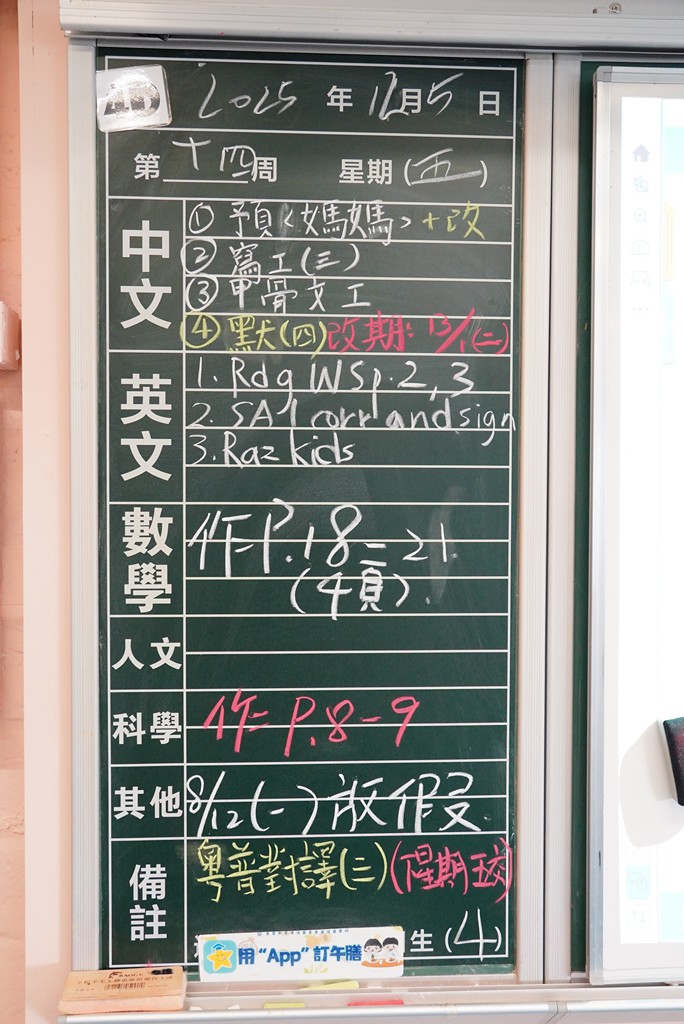 2025 年 12月 5 日
第 十四 周 星期 (五)
中文
① 預<媽媽>+改
② 寫工(三)
③ 甲骨文工
④ 默大(四)改期: 13/1(二)
英文
1. Rdg WS p.2,3
2. SA1 corr and sign
3. Raz kids
數學
作=P.18-21.
(4頁).
人文
科學
作=P.8-9
其他
8/12(一)放假
備註
粵普對譯(二)(星期五交)
生(4)
用“App”訂午膳